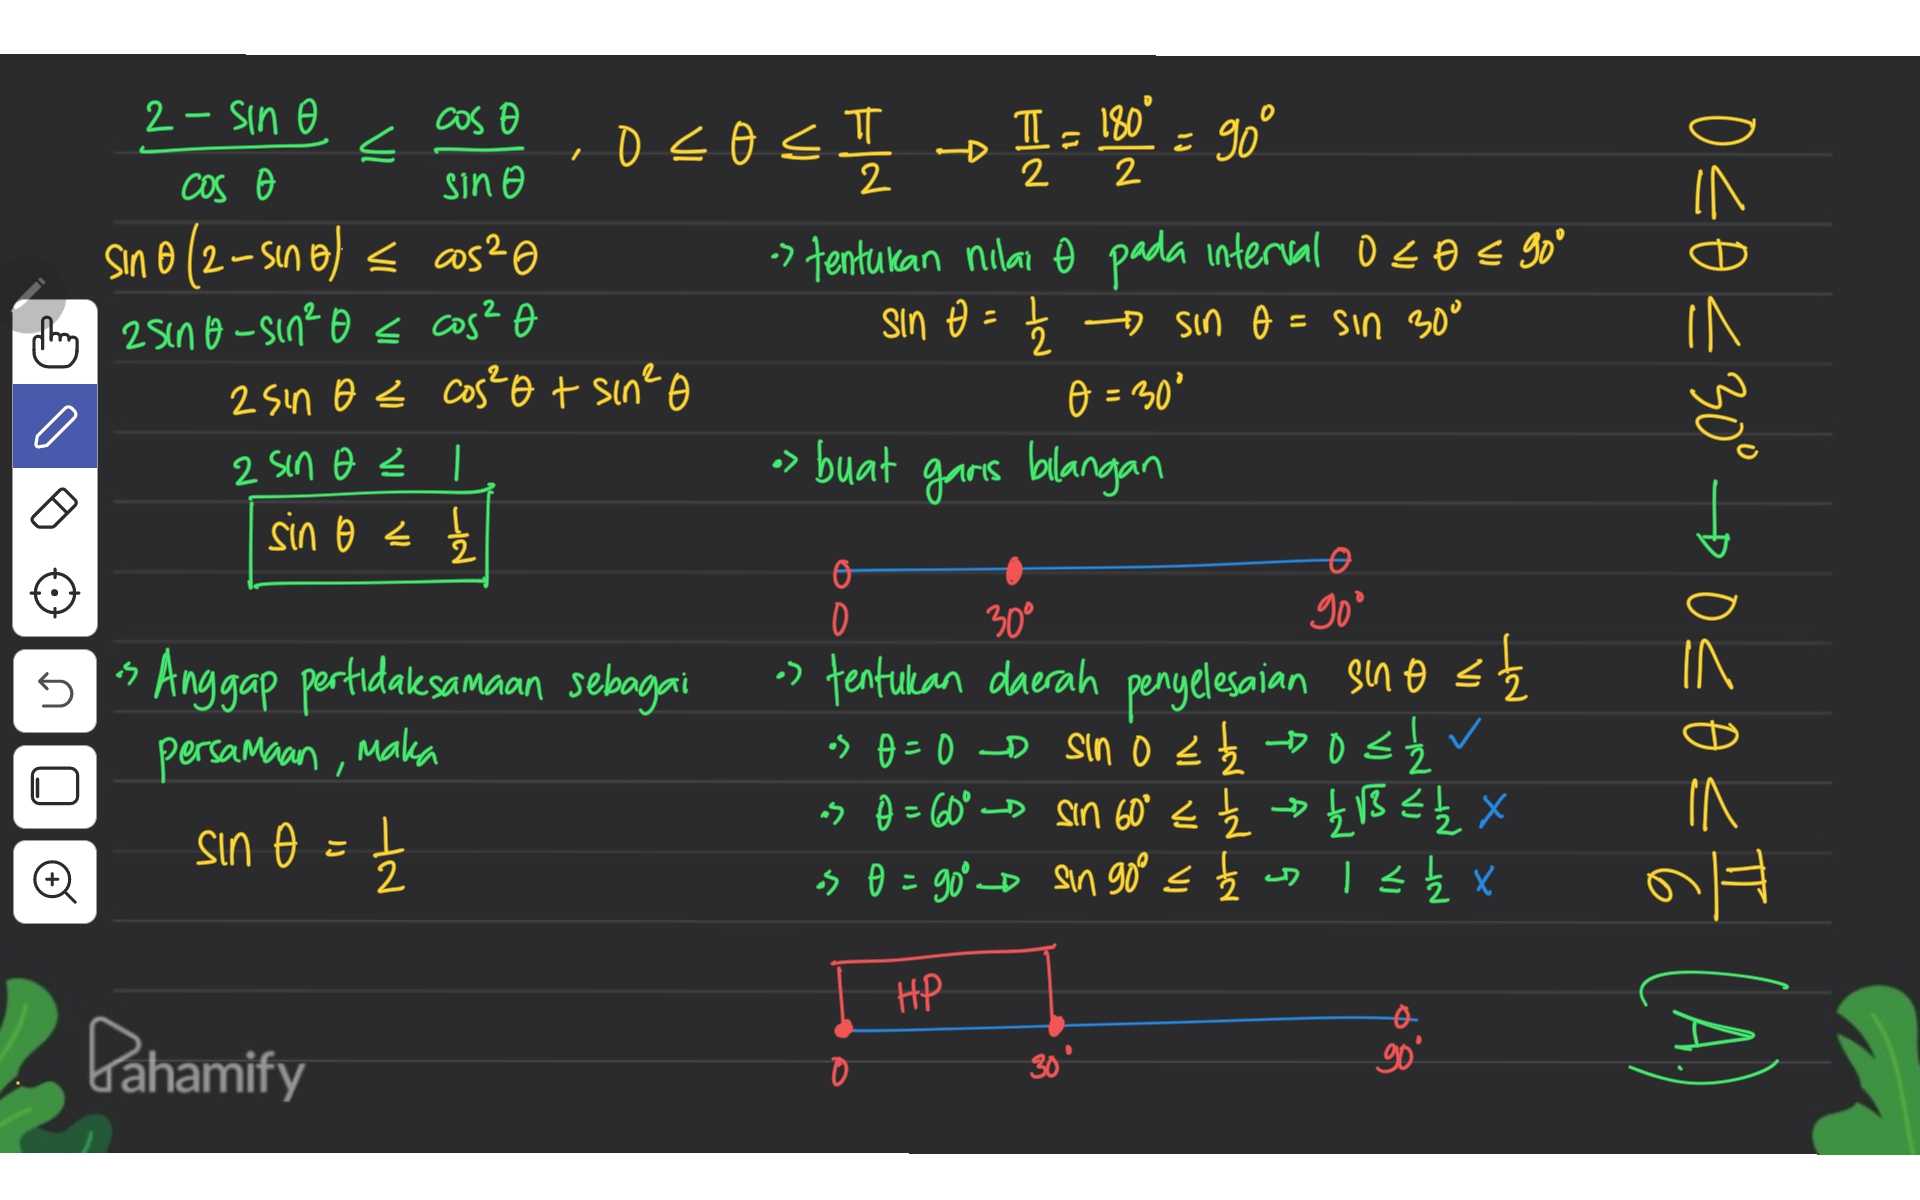 (2 - sin θ)/(cos θ) ≤ (cos θ)/(sin θ) , 0 ≤ θ ≤ π/2 → π/2 = 180°/2 = 90°
sin θ (2 - sin θ) ≤ cos² θ
2 sin θ - sin² θ ≤ cos² θ
2 sin θ ≤ cos² θ + sin² θ
2 sin θ ≤ 1
sin θ ≤ 1/2
⇒ Anggap pertidaksamaan sebagai
persamaan, maka
sin θ = 1/2
⇒ tentukan nilai θ pada interval 0 ≤ θ ≤ 90°
sin θ = 1/2 → sin θ = sin 30°
θ = 30°
⇒ buat garis bilangan
0 30° 90°
⇒ tentukan daerah penyelesaian sin θ ≤ 1/2
⇒ θ = 0 → sin 0 ≤ 1/2 → 0 ≤ 1/2 ✓
⇒ θ = 60° → sin 60° ≤ 1/2 → 1/2 √3 ≤ 1/2 ✗
⇒ θ = 90° → sin 90° ≤ 1/2 → 1 ≤ 1/2 ✗
HP
0 30° 90°
0 ≤ θ ≤ 30° → 0 ≤ θ ≤ π/6
(A)
Pahamify